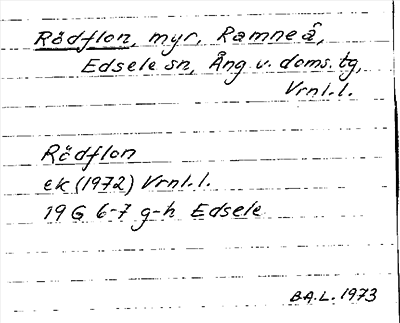 Rödflon, myr, Ramneå,
Edsele sn, Ång v. doms. tg,
Vrnl. l.
Rödflon
ek (1972) Vrnl. l.
19 G 6-7 g-h Edsele
B.A.L. 1973